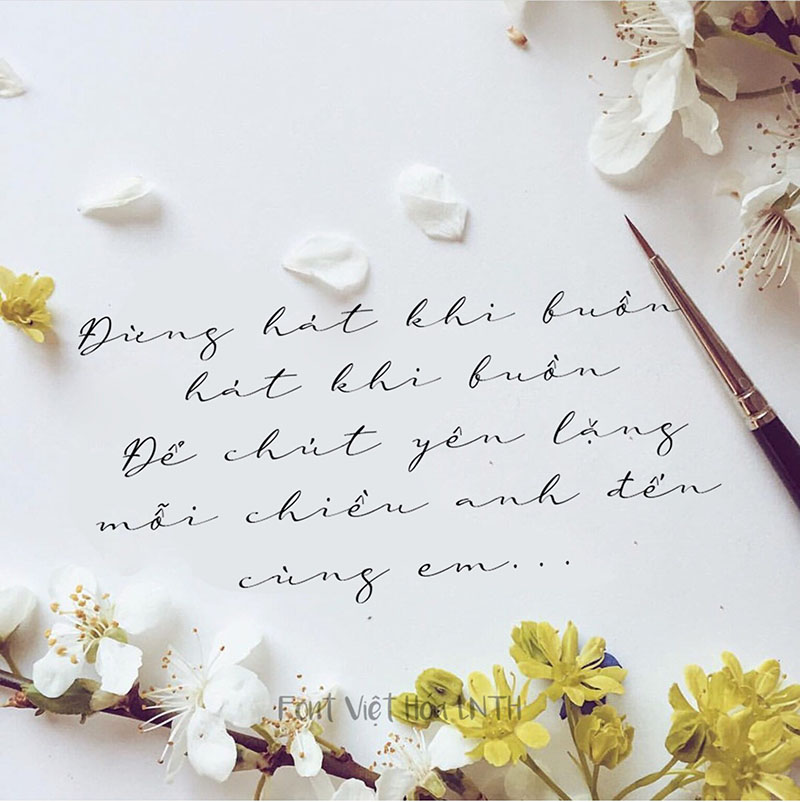 Đừng hát khi buồn
hát khi buồn
Để chút yên lặng
mỗi chiều anh đến
cùng em...
Font Việt Hóa LNTH